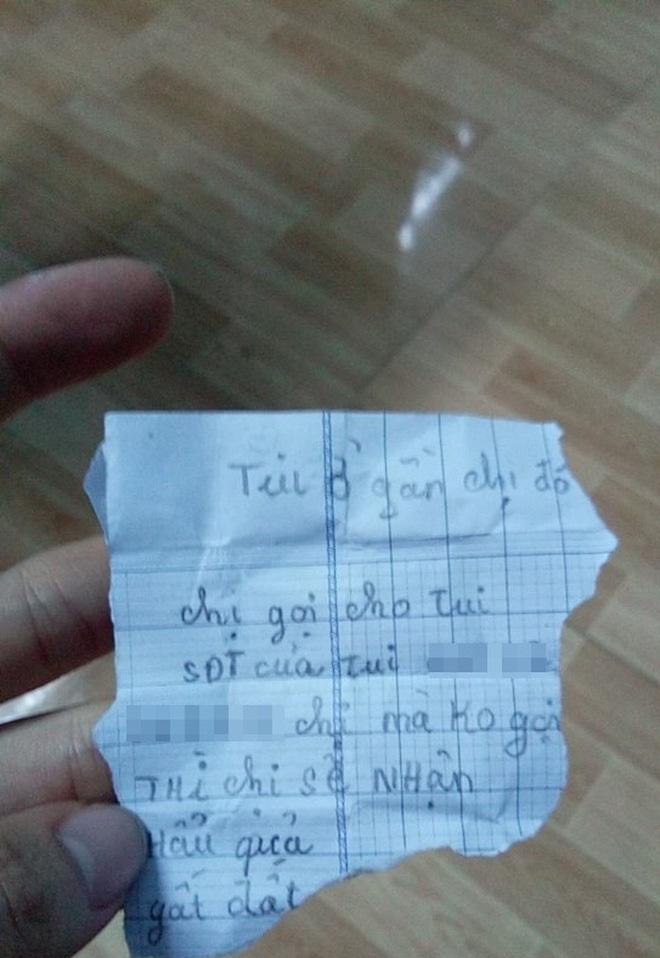 Tui ở gần chị đó
chị gọi cho Tui
SĐT của Tui
chị mà ko gọi
THì chị sẽ NHận
Hẩu quả
gất đắt